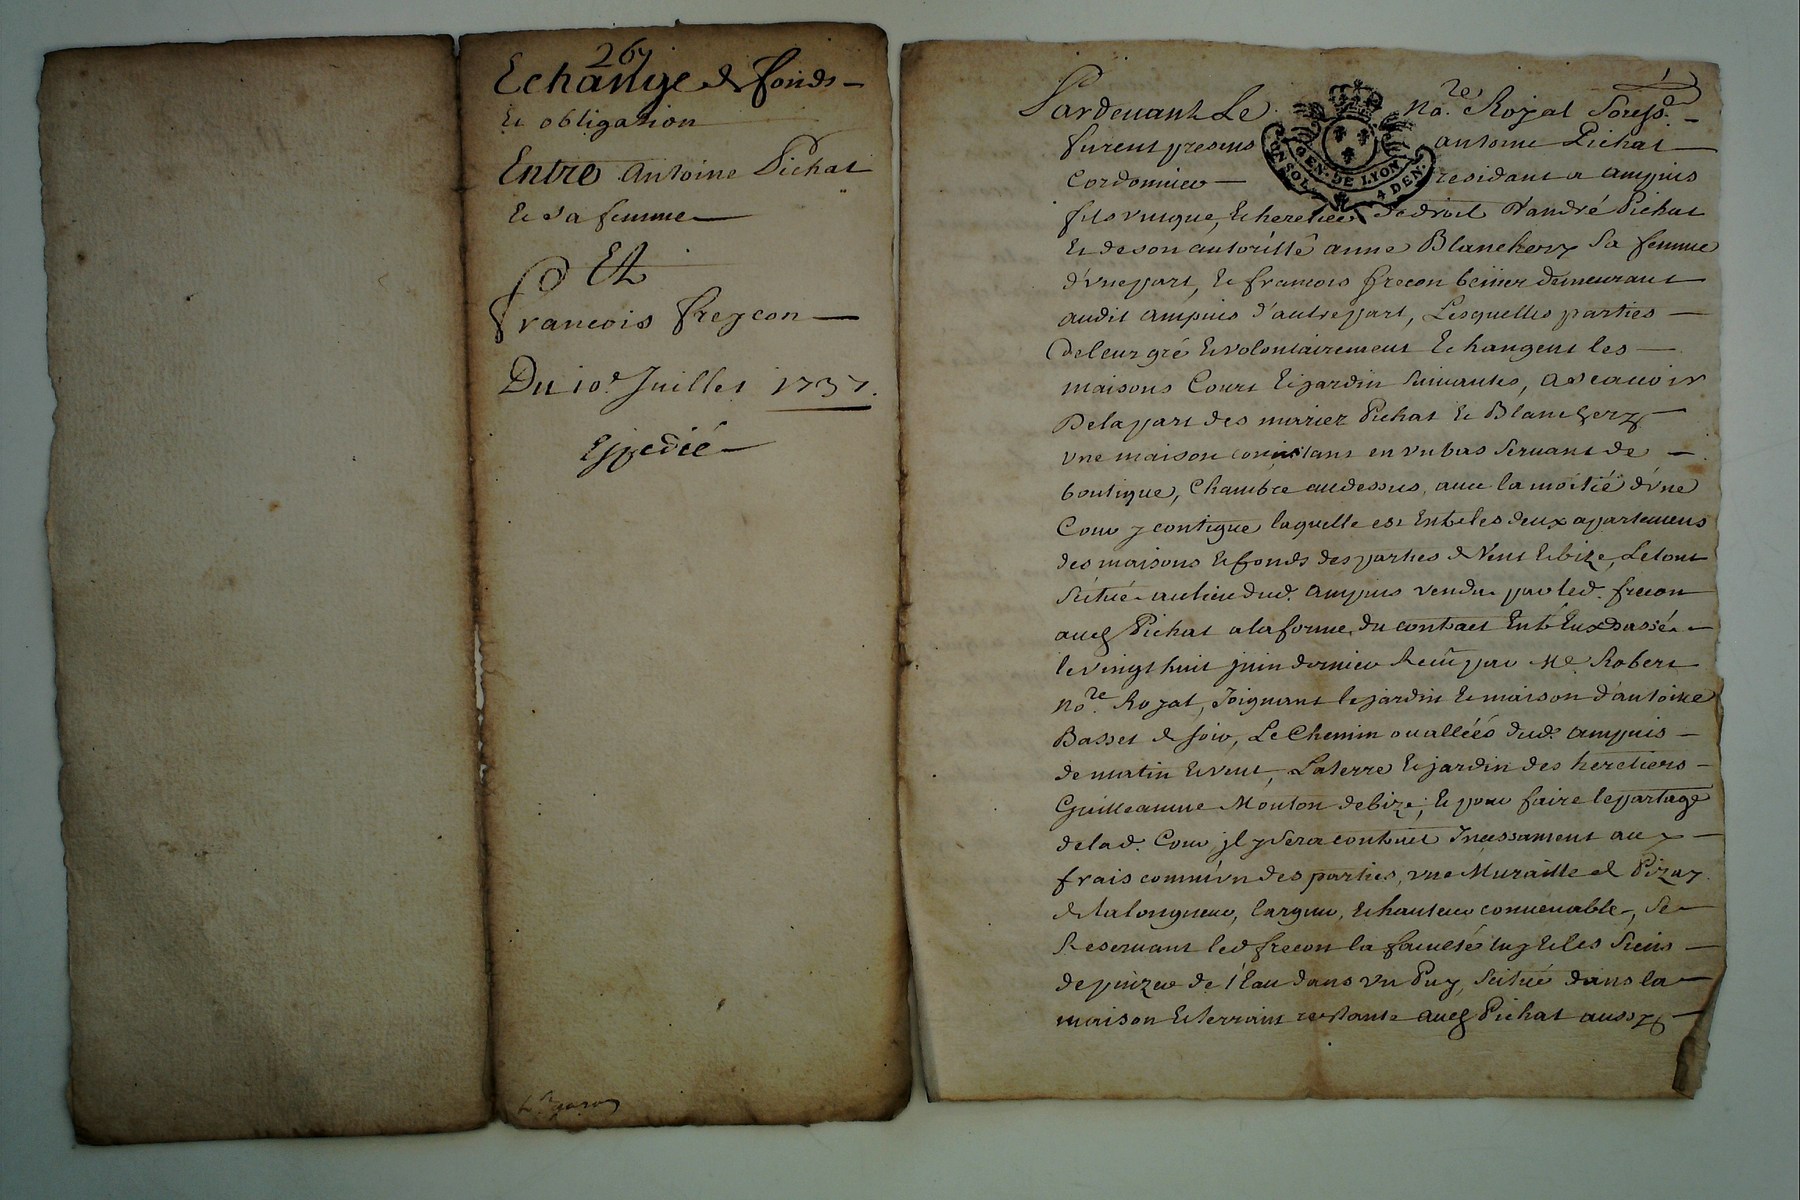 267
Echange de fonds
Et obligation
Entre Antoine Pichat
Et sa femme
Et
francois freycon
Du 10e Juillet 1737.
Expedié
1
Pardevant Le no.re Royal Soussd.
furent presens antoine Pichat
Cordonnier residant a ampuis
fils vnique, & heretier de droit d'andré Pichat
Et de son autorité anne Blanchery sa femme
d'vne part, Et francois frecon demeurant
audit ampuis d'autre part, Lesquelles parties
de leur gré & volontairement Echangent les
maisons Cour & jardin suivantes, a scauoir
De la part des mariez Pichat & Blanchery
vne maison consistant en vn bas seruant de
boutique, Chambre au dessus, auec la moitié d'vne
Cour y contigue laquelle est Entre les deux apartemens
des maisons & fonds des parties de Vent & bize, Le tout
scitué au lieu dud. ampuis vendu par led. frecon
aud. Pichat a la forme du contract Entre Eux passé
le vingt huit juin dernier Receu par Me Robert
no.re Royal, Joignant le jardin & maison d'antoine
Basset de soir, Le Chemin ou allées dud. ampuis
de matin & vent, La terre & jardin des heretiers
Guilleaume Mouton de bize; & pour faire le partage
de lad. Cour jl y sera contruit Incessament aux
frais commun des parties, vne Muraille de Pizay
de la longueur, largeur, & hauteur conuenable, se
Reseruant led frecon la faculté luy & les siens
de puizer de l'Eau dans vn Puy, scitué dans la
maison & terrain restante aud. Pichat aussy
GEN. DE LYON